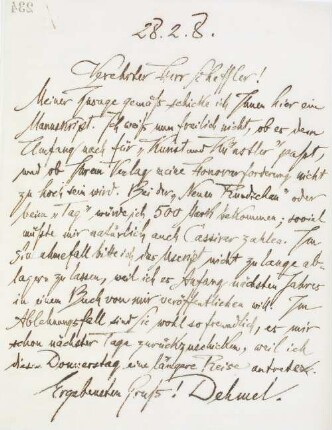 28.2.8.
Verehrter Herr Scheffler!
Meiner Zusage gemäß schicke ich Ihnen hier ein
Manuskript. Ich weiß nun freilich nicht, ob es dem
Umfang nach für „Kunst und Künstler“ paßt,
und ob Ihrem Verlag meine Honorarforderung nicht
zu hoch sein wird. Bei der „Neuen Rundschau“ oder
beim „Tag“ würde ich 500 Mark bekommen; soviel
müßte mir natürlich auch Cassirer zahlen. Im
Annahmefall bitte ich das Mscript nicht zu lange ab-
lagern zu lassen, weil ich es Anfang nächsten Jahres
in einem Buch von mir veröffentlichen will. Im
Ablehnungsfall sind Sie wohl so freundlich, es mir
schon nächster Tage zurückzuschicken, weil ich
diesen Donnerstag eine längere Reise antrete.
Ergebensten Gruß! Dehmel.